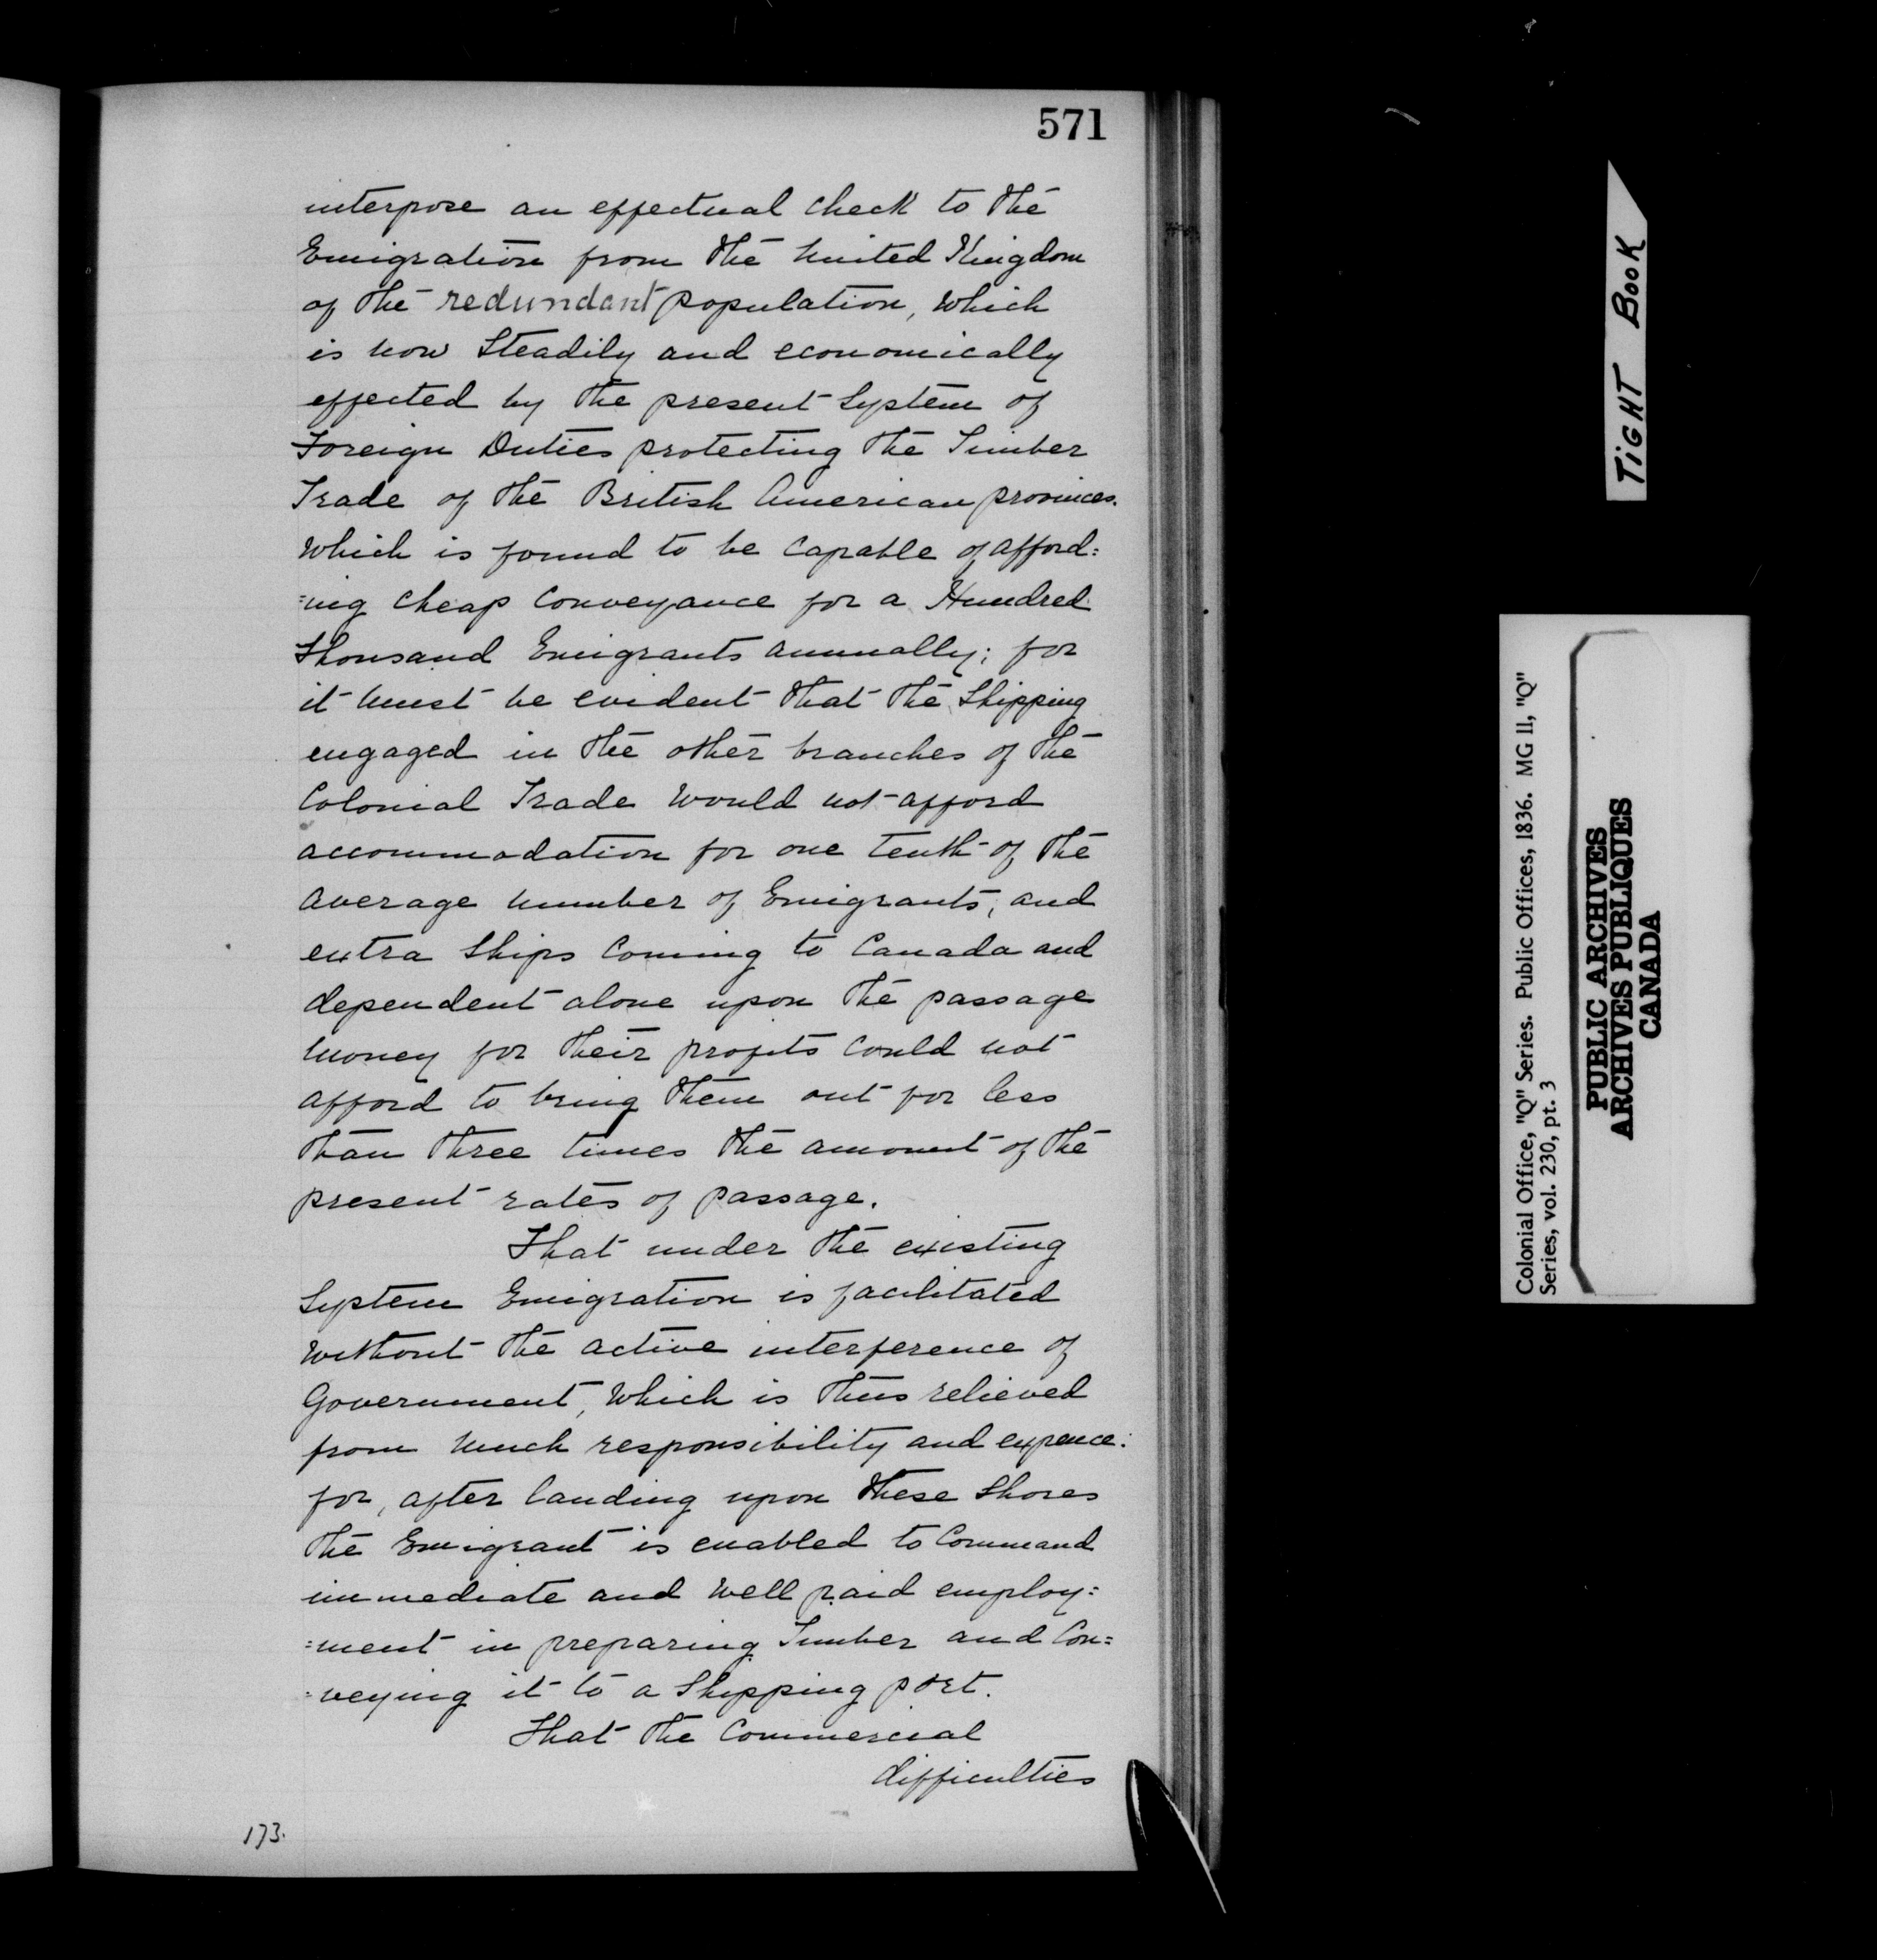 571
interpose an effectual check to the
Emigration from the United Kingdom
of the redundant population, which
is now steadily and economically
effected by the present System of
Foreign Duties protecting the Timber
Trade of the British American provinces.
which is found to be capable of afford=
=ing cheap Conveyance for a Hundred
thousand Emigrants annually; for
it must be evident that the Shipping
engaged in the other branches of the
Colonial Trade would not afford
accommodation for one tenth of the
average number of Emigrants, and
extra Ships Coming to Canada and
dependent alone upon the passage
money for their profits could not
afford to bring them out for less
than three times the amount of the
present rates of passage.
That under the existing
System Emigration is facilitated
without the active interference of
Government, which is thus relieved
from much responsibility and expence:
for, after landing upon these Shores
the Emigrant is enabled to Command
immediate and well paid employ=
=ment in preparing Timber and Con=
=veying it to a Shipping port.
That the Commercial
difficulties
173.
TiGHT BooK
Colonial Office, "Q" Series. Public Offices, 1836. MG 11, "Q"
Series, vol. 230, pt. 3
PUBLIC ARCHIVES
ARCHIVES PUBLIQUES
CANADA